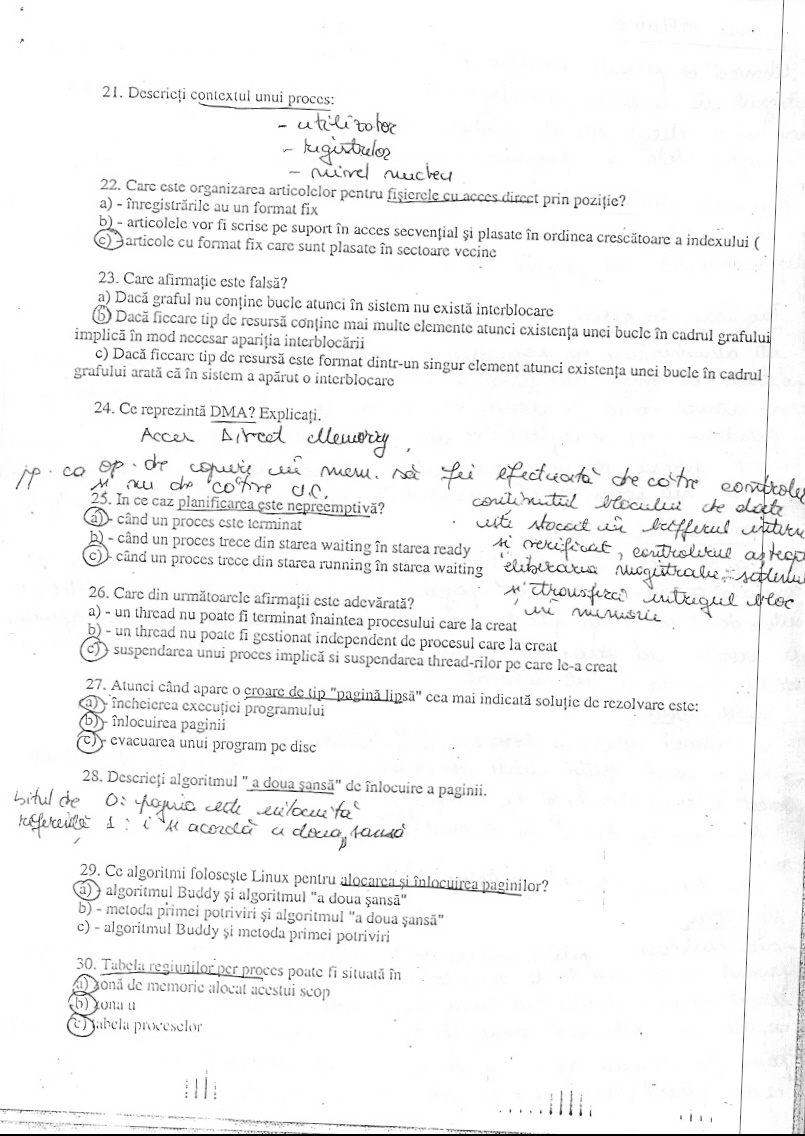 21. Descrieți contextul unui proces:
- utilizator
- registrelor
- nivel nucleu
22. Care este organizarea articolelor pentru fișierele cu acces direct prin poziție?
a) - înregistrările au un format fix
b) - articolele vor fi scrise pe suport în acces secvențial și plasate în ordinea crescătoare a indexului (
c) - articole cu format fix care sunt plasate în sectoare vecine
23. Care afirmație este falsă?
a) Dacă graful nu conține bucle atunci în sistem nu există interblocare
b) Dacă fiecare tip de resursă conține mai multe elemente atunci existența unei bucle în cadrul grafului
implică în mod necesar apariția interblocării
c) Dacă fiecare tip de resursă este format dintr-un singur element atunci existența unei bucle în cadrul
grafului arată că în sistem a apărut o interblocare
24. Ce reprezintă DMA? Explicați.
Acces Direct Memory.
pp. ca op. de copiere în mem. să fie efectuată de către controler
și nu de către UC.
conținutul blocului de date
este stocat în bufferul intern
și verificat, controlerul așteaptă
eliberarea magistralei
și transferă întregul bloc
în memorie
25. In ce caz planificarea este nepreemptivă?
a) - când un proces este terminat
b) - când un proces trece din starea waiting în starea ready
c) - când un proces trece din starea running în starea waiting
26. Care din următoarele afirmații este adevărată?
a) - un thread nu poate fi terminat înaintea procesului care la creat
b) - un thread nu poate fi gestionat independent de procesul care la creat
c) - suspendarea unui proces implică si suspendarea thread-rilor pe care le-a creat
27. Atunci când apare o eroare de tip "pagină lipsă" cea mai indicată soluție de rezolvare este:
a) - încheierea execuției programului
b) - înlocuirea paginii
c) - evacuarea unui program pe disc
28. Descrieți algoritmul " a doua șansă" de înlocuire a paginii.
bitul de 0: pagina este înlocuită
referență 1: i se acordă a doua șansă
29. Ce algoritmi folosește Linux pentru alocarea și înlocuirea paginilor?
a) - algoritmul Buddy și algoritmul "a doua șansă"
b) - metoda primei potriviri și algoritmul "a doua șansă"
c) - algoritmul Buddy și metoda primei potriviri
30. Tabela regiunilor per proces poate fi situată în
a) zonă de memorie alocat acestui scop
b) zona u
c) tabela proceselor